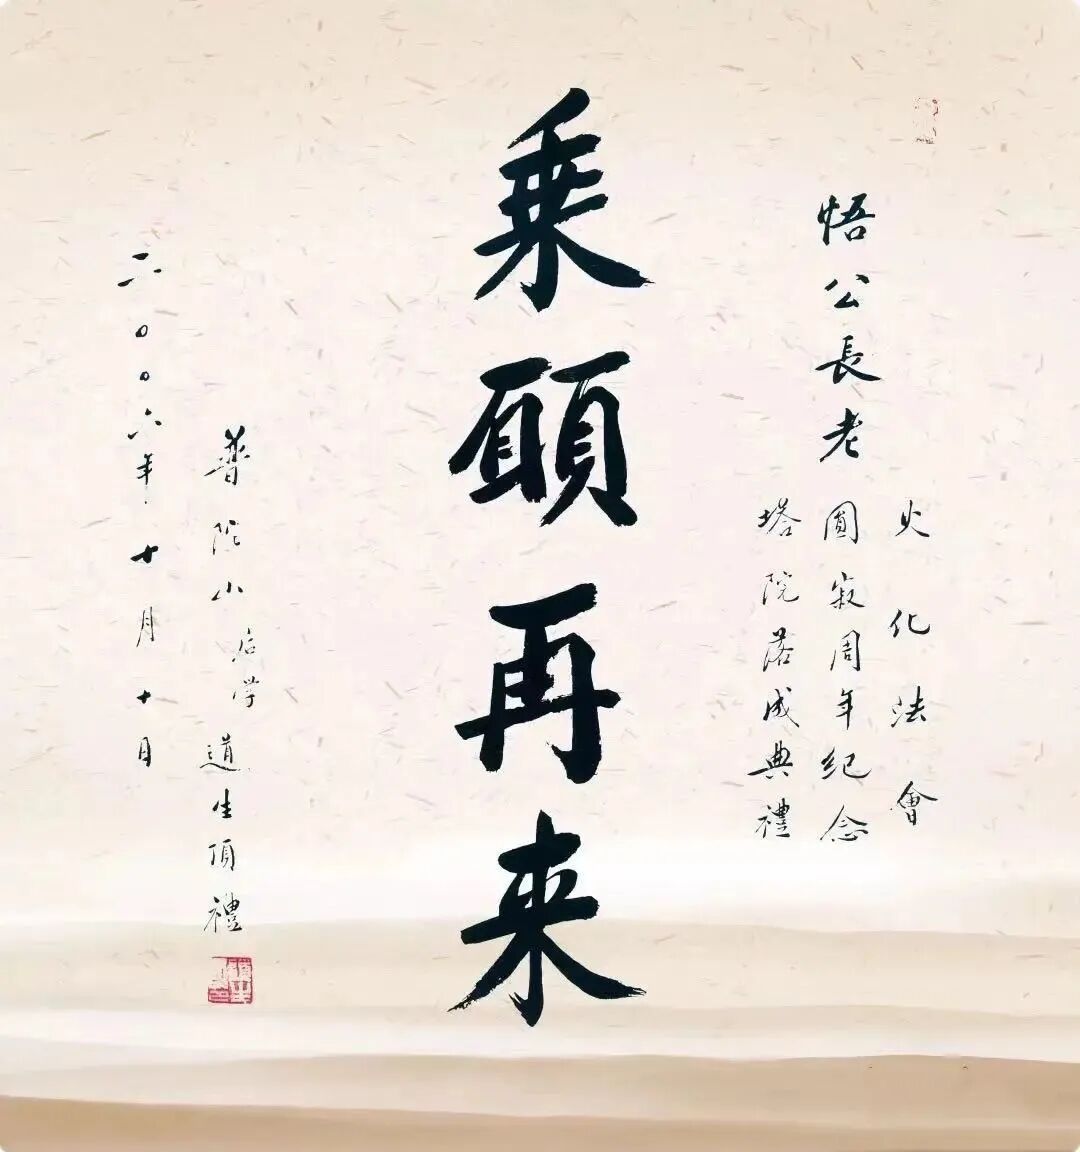 悟公長老
火化法會
圓寂周年紀念
塔院落成典禮
乗願再来
普陀山后学道生頂禮
二〇〇六年十月十日